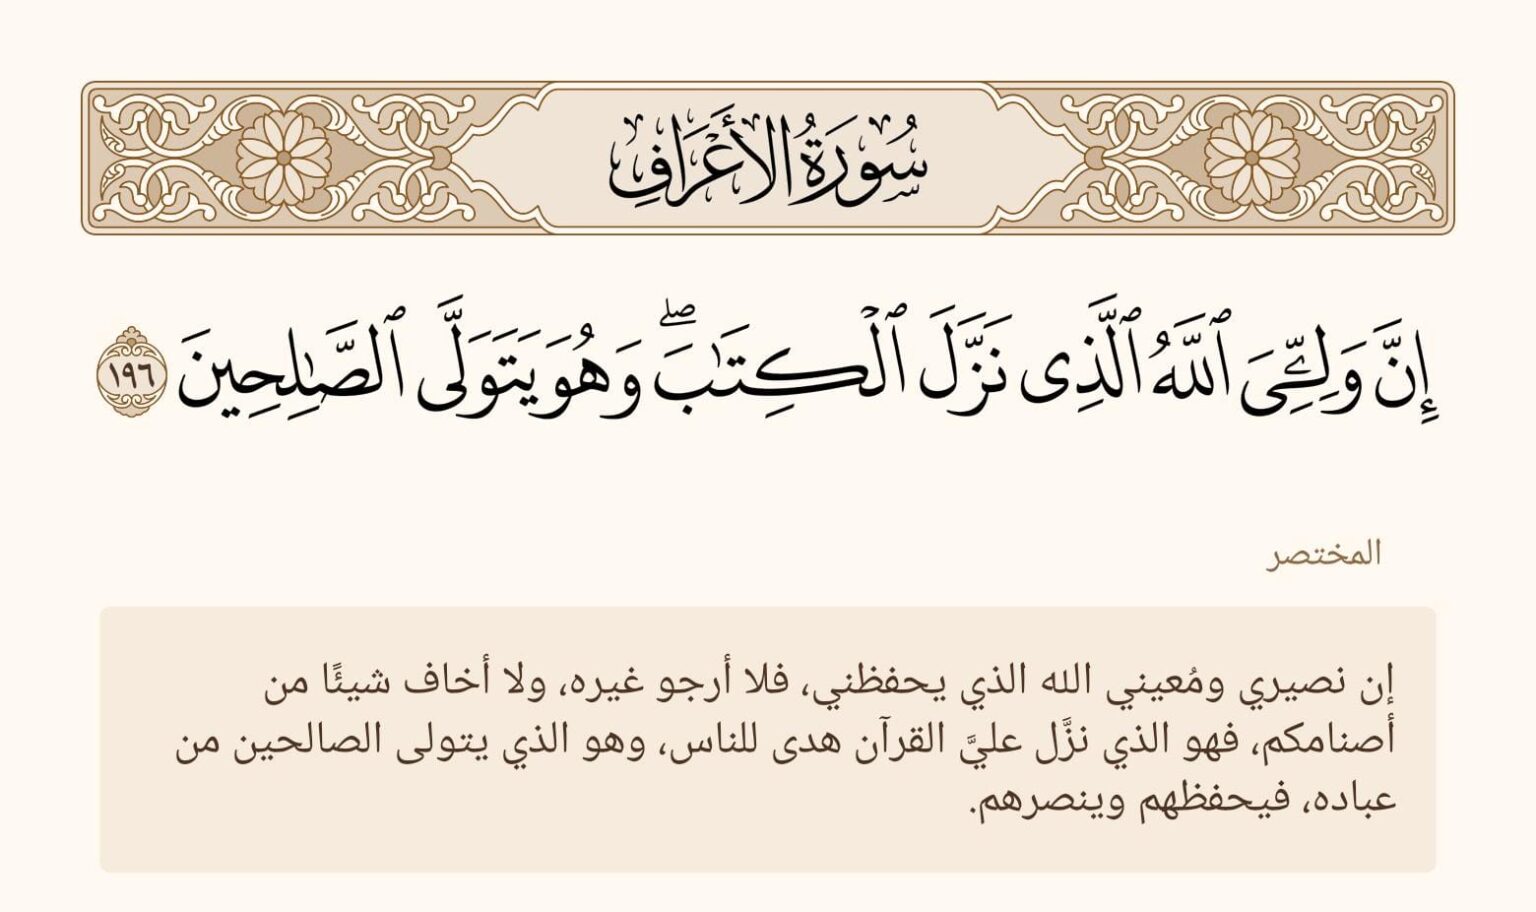 سُورَةُ الأَعْرَافِ
إِنَّ وَلِـِّۧيَ ٱللَّهُ ٱلَّذِى نَزَّلَ ٱلْكِتَـٰبَ ۖ وَهُوَ يَتَوَلَّى ٱلصَّـٰلِحِينَ ١٩٦
المختصر
إن نصيري ومُعيني الله الذي يحفظني، فلا أرجو غيره، ولا أخاف شيئًا من
أصنامكم، فهو الذي نزَّل عليَّ القرآن هدى للناس، وهو الذي يتولى الصالحين من
عباده، فيحفظهم وينصرهم.